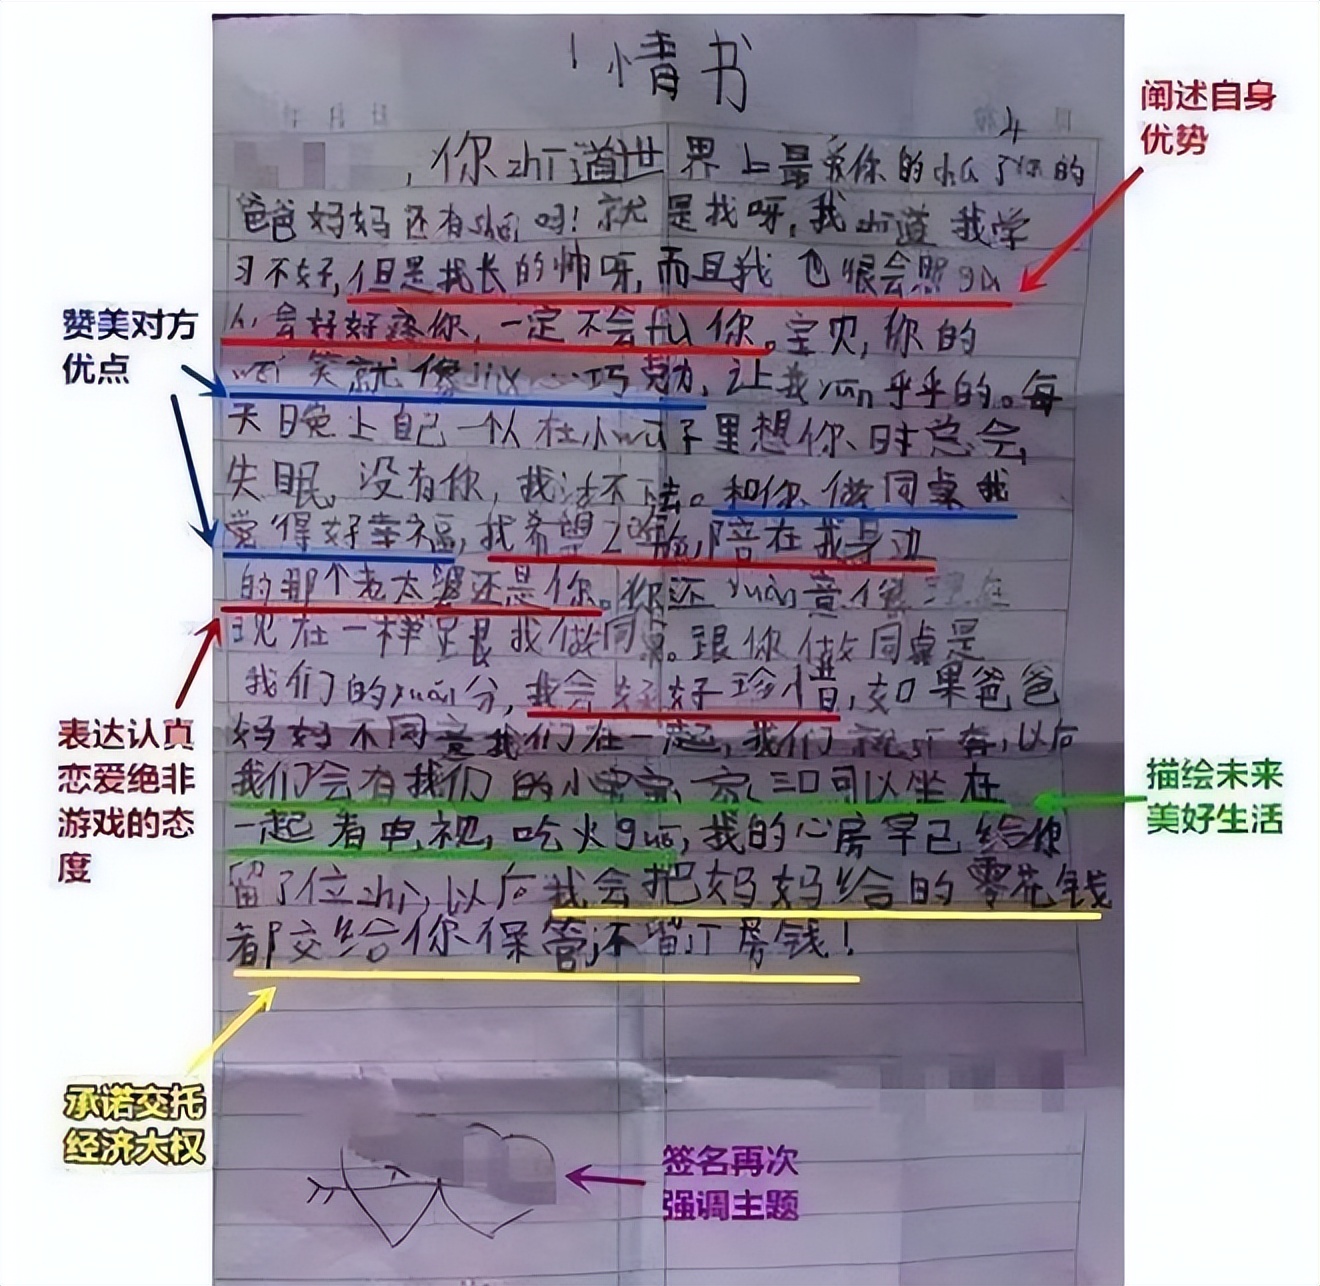 情书
阐述自身
优势
，你zhi道世界上最爱你的chu了你的
爸爸妈妈还有shei吗！就是我呀，我zhi道我学
习不好，但是我长的帅呀，而且我也很会照gu
人，会好好疼你，一定不会fu你。宝贝，你的
赞美对方
优点
wei笑就像jix心巧勀，让我yun乎乎的。每
天晚上自己一个人在小wu子里想你时总会
失眠，没有你，我活不下去。和你做同桌我
觉得好幸福，我希望，陪在我身边
的那个老太婆还是你。你还yuan意像现在
现在一样跟我做同桌。跟你做同桌是
我们的yuan分，我会好好珍惜，如果爸爸
表达认真
恋爱绝非
游戏的态
度
妈妈不同意我们在一起，我们，以后
我们会有我们的小宝宝，一家三口可以坐在
描绘未来
美好生活
一起看电视，吃火guo，我的心房早已给你
留了位zhi，以后我会把妈妈给的零花钱
都交给你保管，不留订房钱！
承诺交托
经济大权
签名再次
强调主题